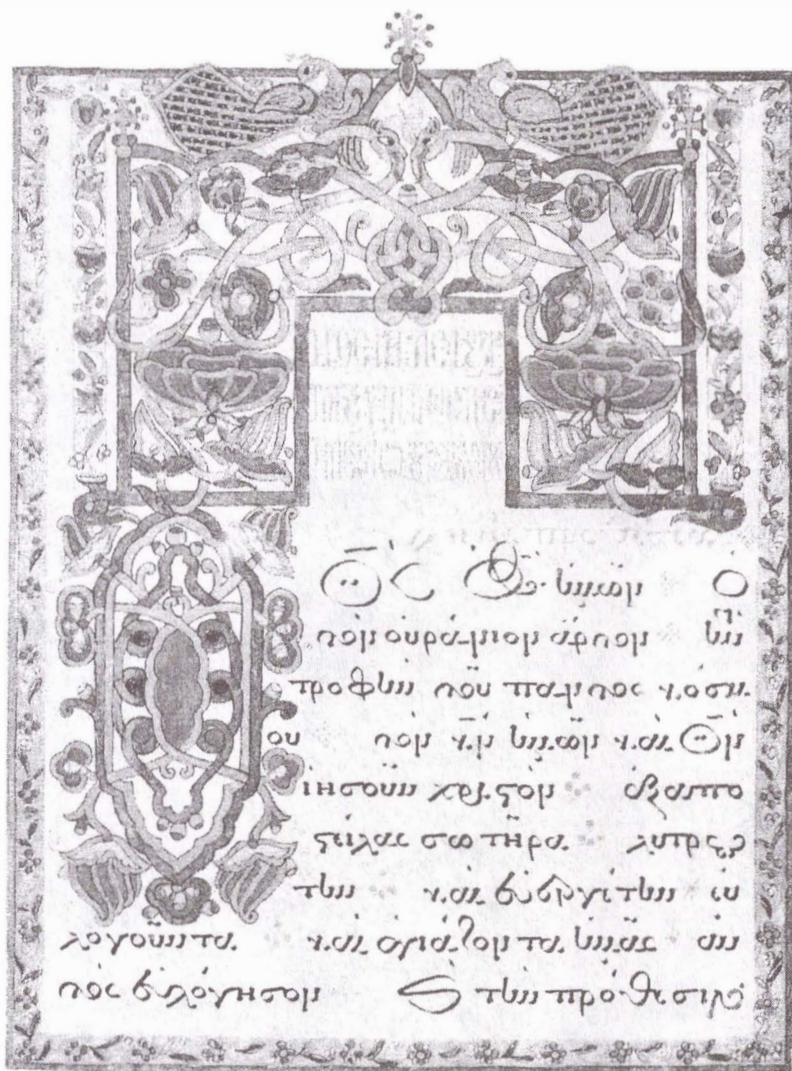 Θ̅ς ὁ Θ̅ς ἡμῶν ὁ
τὸν οὐράνιον ἄρτον τὴν
τροφὴν τοῦ παντὸς κόσμ
ου τὸν κ̅ν ἡμῶν καὶ Θ̅ν
ἰησοῦν χριστὸν ἐξαπο
στείλας σωτῆρα λυτρω
τὴν καὶ εὐεργέτην εὐ
λογοῦντα καὶ ἁγιάζοντα ἡμᾶς αὐ
τὸς εὐλόγησον τὴν πρόθεσιν